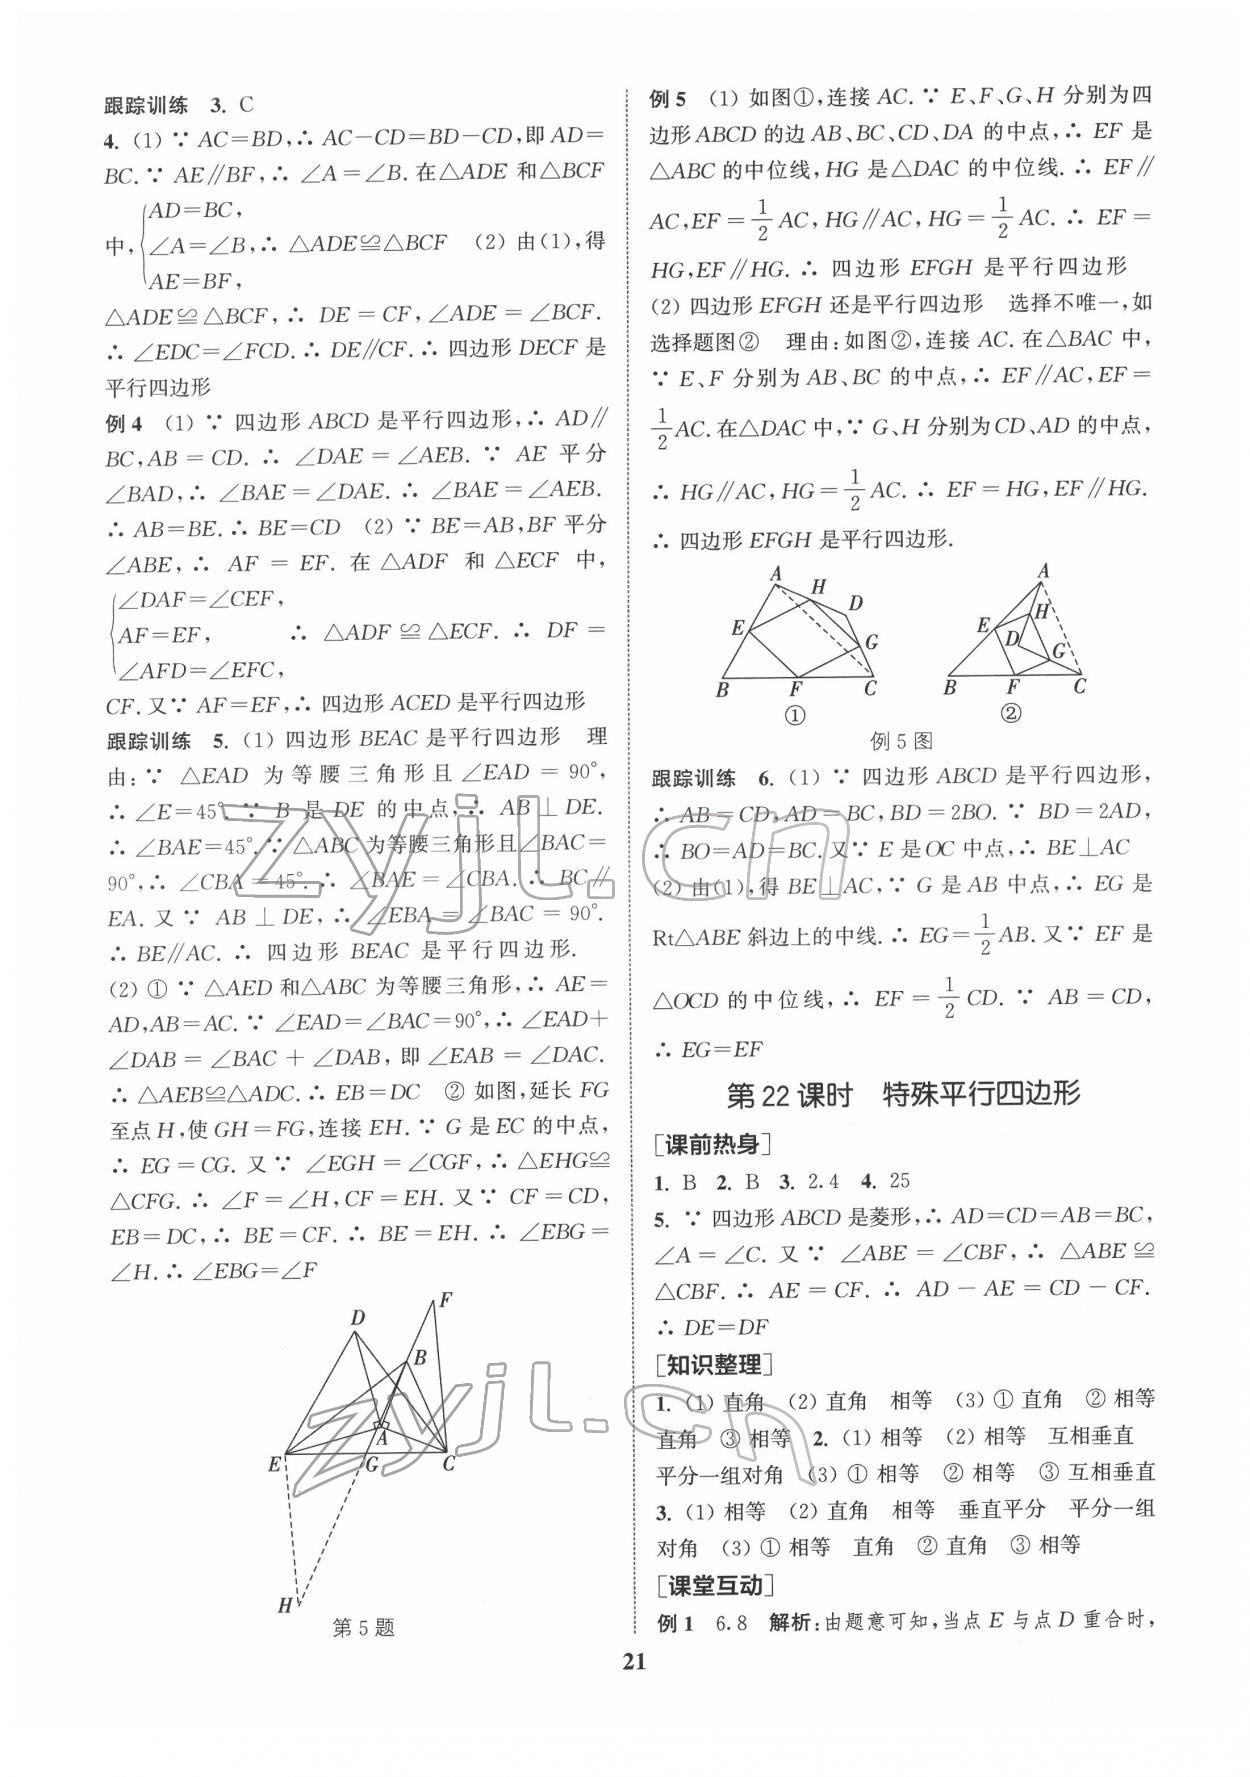 跟踪训练 3. C
4. (1) ∵ AC=BD,∴ AC−CD=BD−CD,即 AD=
BC.∵ AE∥BF,∴ ∠A=∠B.在△ADE 和△BCF
AD=BC,
中, ∠A=∠B,∴ △ADE≌△BCF (2) 由(1),得
AE=BF,
△ADE≌△BCF,∴ DE=CF,∠ADE=∠BCF.
∴ ∠EDC=∠FCD.∴ DE∥CF.∴ 四边形 DECF 是
平行四边形
例 4 (1) ∵ 四边形 ABCD 是平行四边形,∴ AD∥
BC,AB=CD.∴ ∠DAE=∠AEB.∵ AE 平分
∠BAD,∴ ∠BAE=∠DAE.∴ ∠BAE=∠AEB.
∴ AB=BE.∴ BE=CD (2) ∵ BE=AB,BF 平分
∠ABE,∴ AF=EF.在△ADF 和△ECF 中,
∠DAF=∠CEF,
AF=EF, ∴ △ADF≌△ECF.∴ DF=
∠AFD=∠EFC,
CF.又∵ AF=EF,∴ 四边形 ACED 是平行四边形
跟踪训练 5. (1) 四边形 BEAC 是平行四边形 理
由:∵ △EAD 为等腰三角形且∠EAD=90°,
∴ ∠E=45°.∵ B 是 DE 的中点,∴ AB⊥DE.
∴ ∠BAE=45°.∵ △ABC 为等腰三角形且∠BAC=
90°,∴ ∠CBA=45°.∴ ∠BAE=∠CBA.∴ BC∥
EA.又∵ AB⊥DE,∴ ∠EBA=∠BAC=90°.
∴ BE∥AC.∴ 四边形 BEAC 是平行四边形.
(2) ① ∵ △AED 和△ABC 为等腰三角形,∴ AE=
AD,AB=AC.∵ ∠EAD=∠BAC=90°,∴ ∠EAD+
∠DAB=∠BAC+∠DAB,即∠EAB=∠DAC.
∴ △AEB≌△ADC.∴ EB=DC ② 如图,延长 FG
至点 H,使 GH=FG,连接 EH.∵ G 是 EC 的中点,
∴ EG=CG.又∵ ∠EGH=∠CGF,∴ △EHG≌
△CFG.∴ ∠F=∠H,CF=EH.又∵ CF=CD,
EB=DC,∴ BE=CF.∴ BE=EH.∴ ∠EBG=
∠H.∴ ∠EBG=∠F
F
D
B
A
E G C
H
第 5 题
例 5 (1) 如图①,连接 AC.∵ E、F、G、H 分别为四
边形 ABCD 的边 AB、BC、CD、DA 的中点,∴ EF 是
△ABC 的中位线,HG 是△DAC 的中位线.∴ EF∥
AC,EF=1/2 AC,HG∥AC,HG=1/2 AC.∴ EF=
HG,EF∥HG.∴ 四边形 EFGH 是平行四边形
(2) 四边形 EFGH 还是平行四边形 选择不唯一,如
选择题图② 理由:如图②,连接 AC.在△BAC 中,
∵ E、F 分别为 AB、BC 的中点,∴ EF∥AC,EF=
1/2 AC.在△DAC 中,∵ G、H 分别为 CD、AD 的中点,
∴ HG∥AC,HG=1/2 AC.∴ EF=HG,EF∥HG.
∴ 四边形 EFGH 是平行四边形.
A H D E G B F C
①
A H E D G B F C
②
例 5 图
跟踪训练 6. (1) ∵ 四边形 ABCD 是平行四边形,
∴ AB=CD,AD=BC,BD=2BO.∵ BD=2AD,
∴ BO=AD=BC.又∵ E 是 OC 中点,∴ BE⊥AC
(2) 由(1),得 BE⊥AC,∵ G 是 AB 中点,∴ EG 是
Rt△ABE 斜边上的中线.∴ EG=1/2 AB.又∵ EF 是
△OCD 的中位线,∴ EF=1/2 CD.∵ AB=CD,
∴ EG=EF
第 22 课时 特殊平行四边形
[课前热身]
1. B 2. B 3. 2.4 4. 25
5. ∵ 四边形 ABCD 是菱形,∴ AD=CD=AB=BC,
∠A=∠C.又∵ ∠ABE=∠CBF,∴ △ABE≌
△CBF.∴ AE=CF.∴ AD−AE=CD−CF.
∴ DE=DF
[知识整理]
1. (1) 直角 (2) 直角 相等 (3) ① 直角 ② 相等
直角 ③ 相等 2. (1) 相等 (2) 相等 互相垂直
平分一组对角 (3) ① 相等 ② 相等 ③ 互相垂直
3. (1) 相等 (2) 直角 相等 垂直平分 平分一组
对角 (3) ① 相等 直角 ② 直角 ③ 相等
[课堂互动]
例 1 6.8 解析:由题意可知,当点 E 与点 D 重合时,
21
zyjl.cn
zyjl.cn